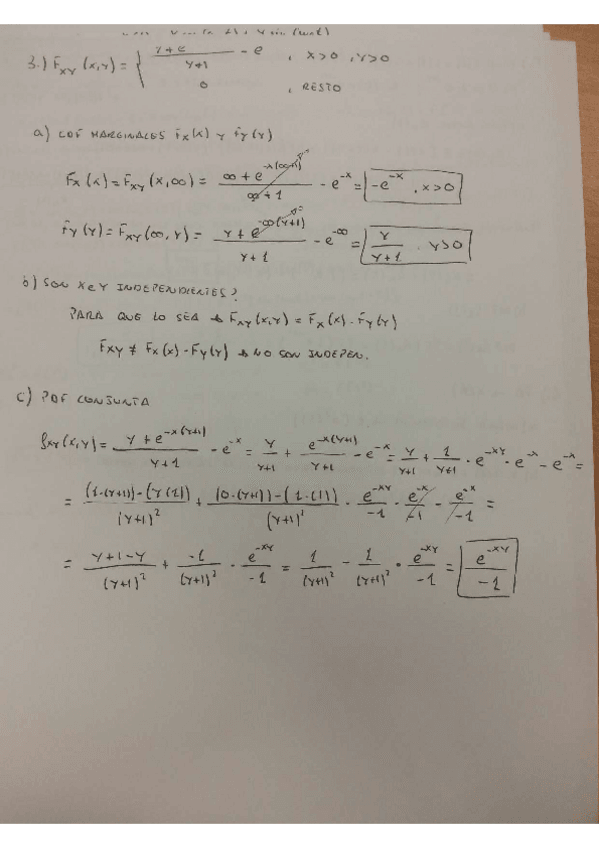 3.) F_XY (x,y) = { (y+e)/(y+1) - e , x>0, y>0
0 , RESTO
a) CDF MARGINALES Fx(x) y Fy(y)
Fx(x) = F_XY(x,∞) = (∞+e^{-x(∞+1)})/(∞+1) - e^{-x} = -e^{-x} , x>0
Fy(y) = F_XY(∞,y) = (y+e^{-∞(y+1)})/(y+1) - e^{-∞} = y/(y+1) . y>0
b) SON X e Y INDEPENDIENTES?
PARA QUE LO SEA → F_XY(x,y) = Fx(x) · Fy(y)
F_XY ≠ Fx(x) - Fy(y) → NO SON INDEPEN.
c) PDF CONJUNTA
f_XY(x,y) = (y+e^{-x(y+1)})/(y+1) - e^{-x} = y/(y+1) + e^{-x(y+1)}/(y+1) - e^{-x} = y/(y+1) + 1/(y+1) · e^{-xy} · e^{-x} - e^{-x} =
= ((1·(y+1)) - (y(1)))/(y+1)^2 + ((0·(y+1)) - (1·(1)))/(y+1)^2 · e^{-xy}/-1 · e^{-x}/-1 - e^{-x}/-1 =
= (y+1-y)/(y+1)^2 + -1/(y+1)^2 · e^{-xy}/-1 = 1/(y+1)^2 - 1/(y+1)^2 · e^{-xy}/-1 = e^{-xy}/-1